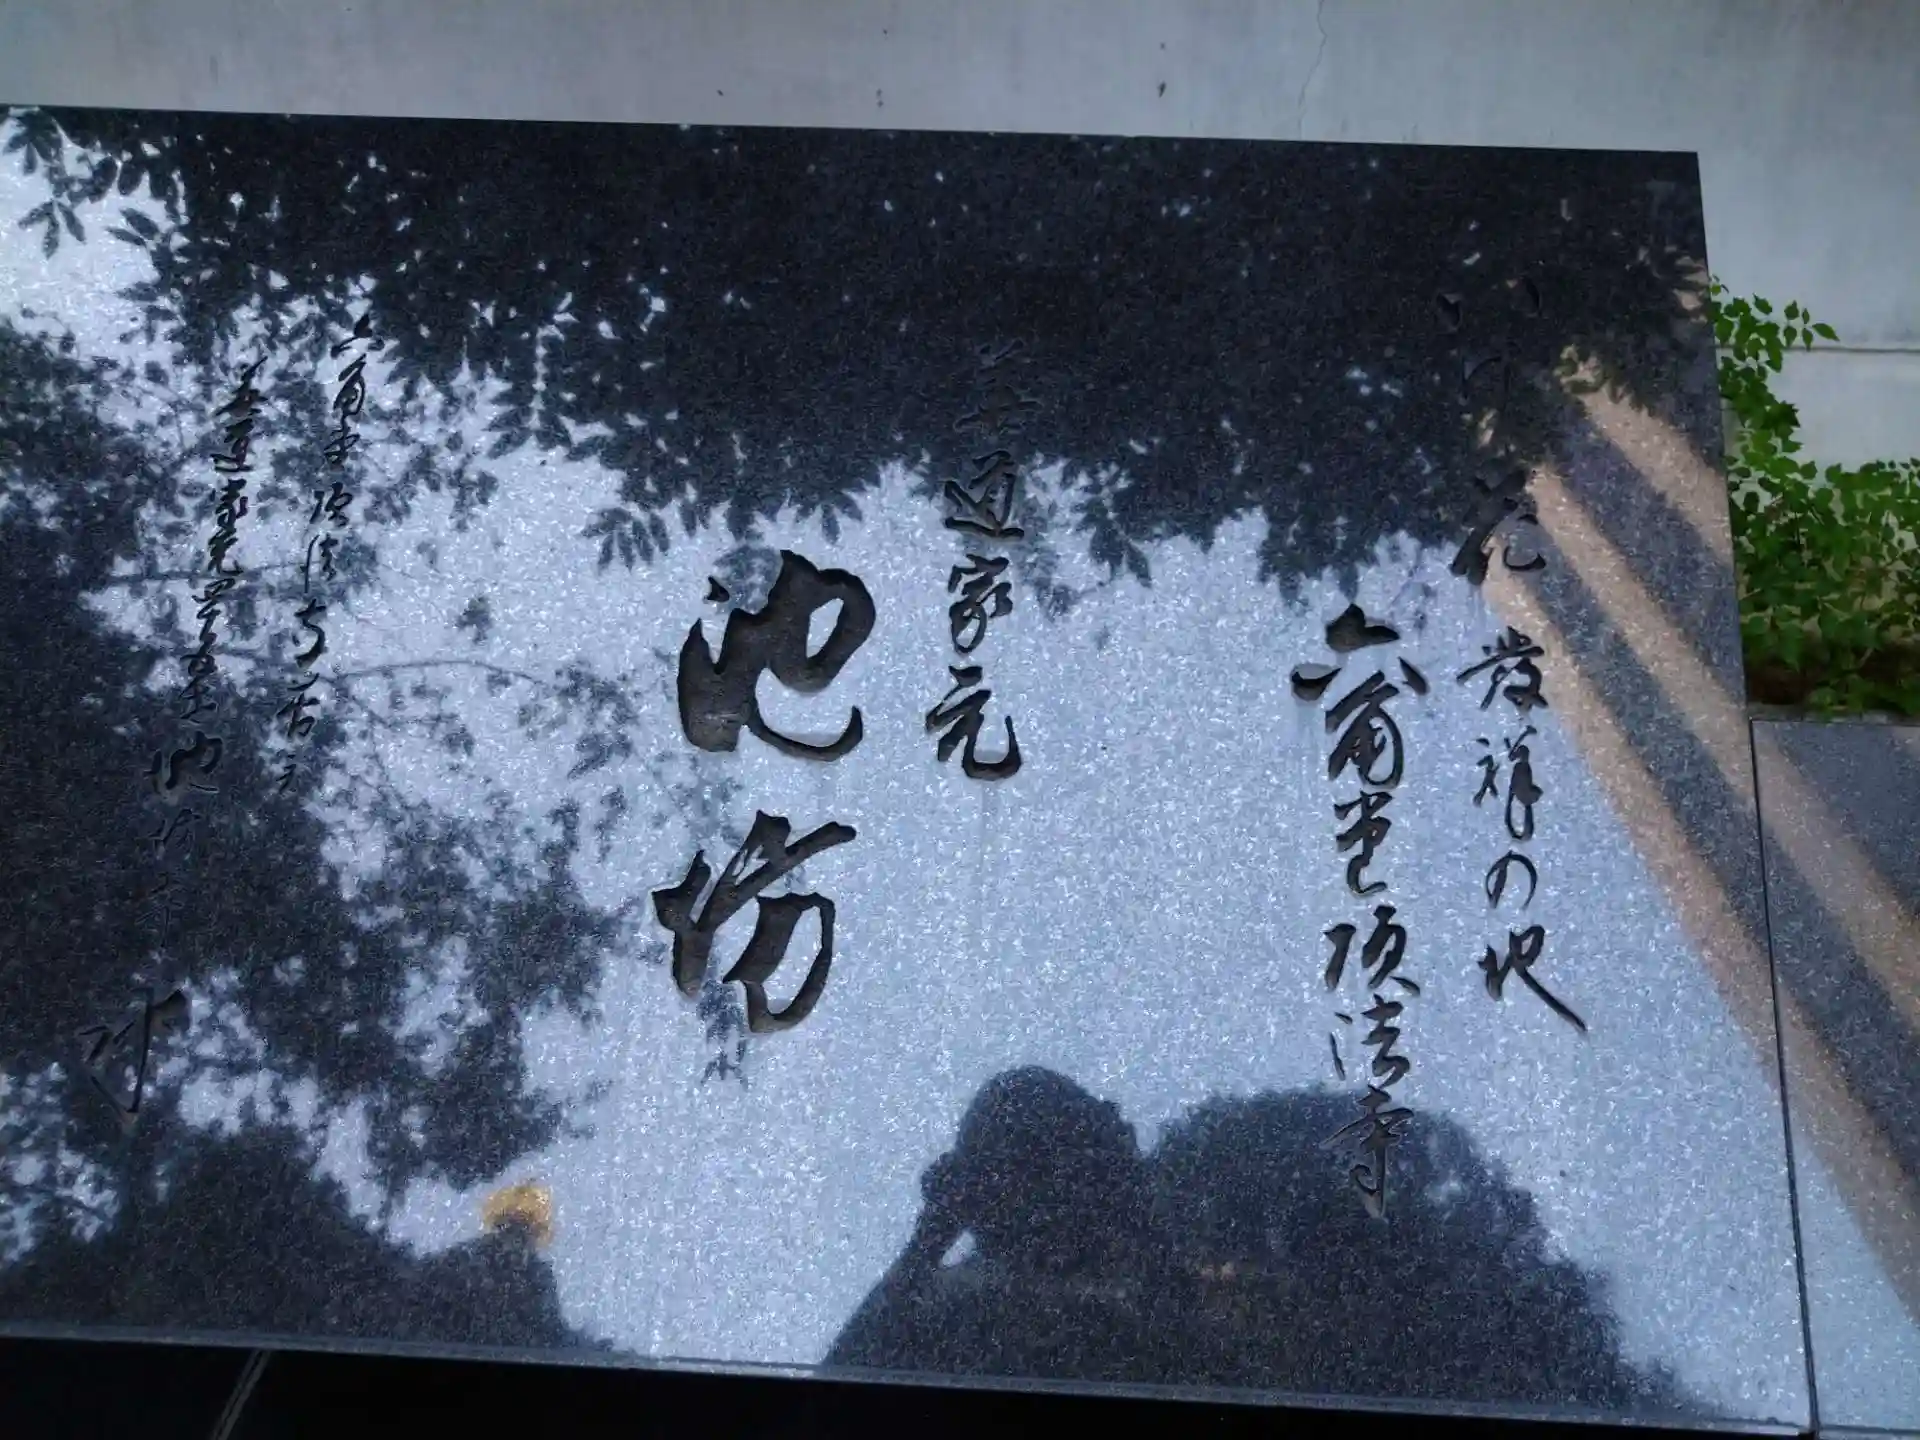 いけ花 發祥の地
六角堂頂法寺
華道家元
池坊
六角堂頂法寺住職
華道家元四十五世 池坊専永